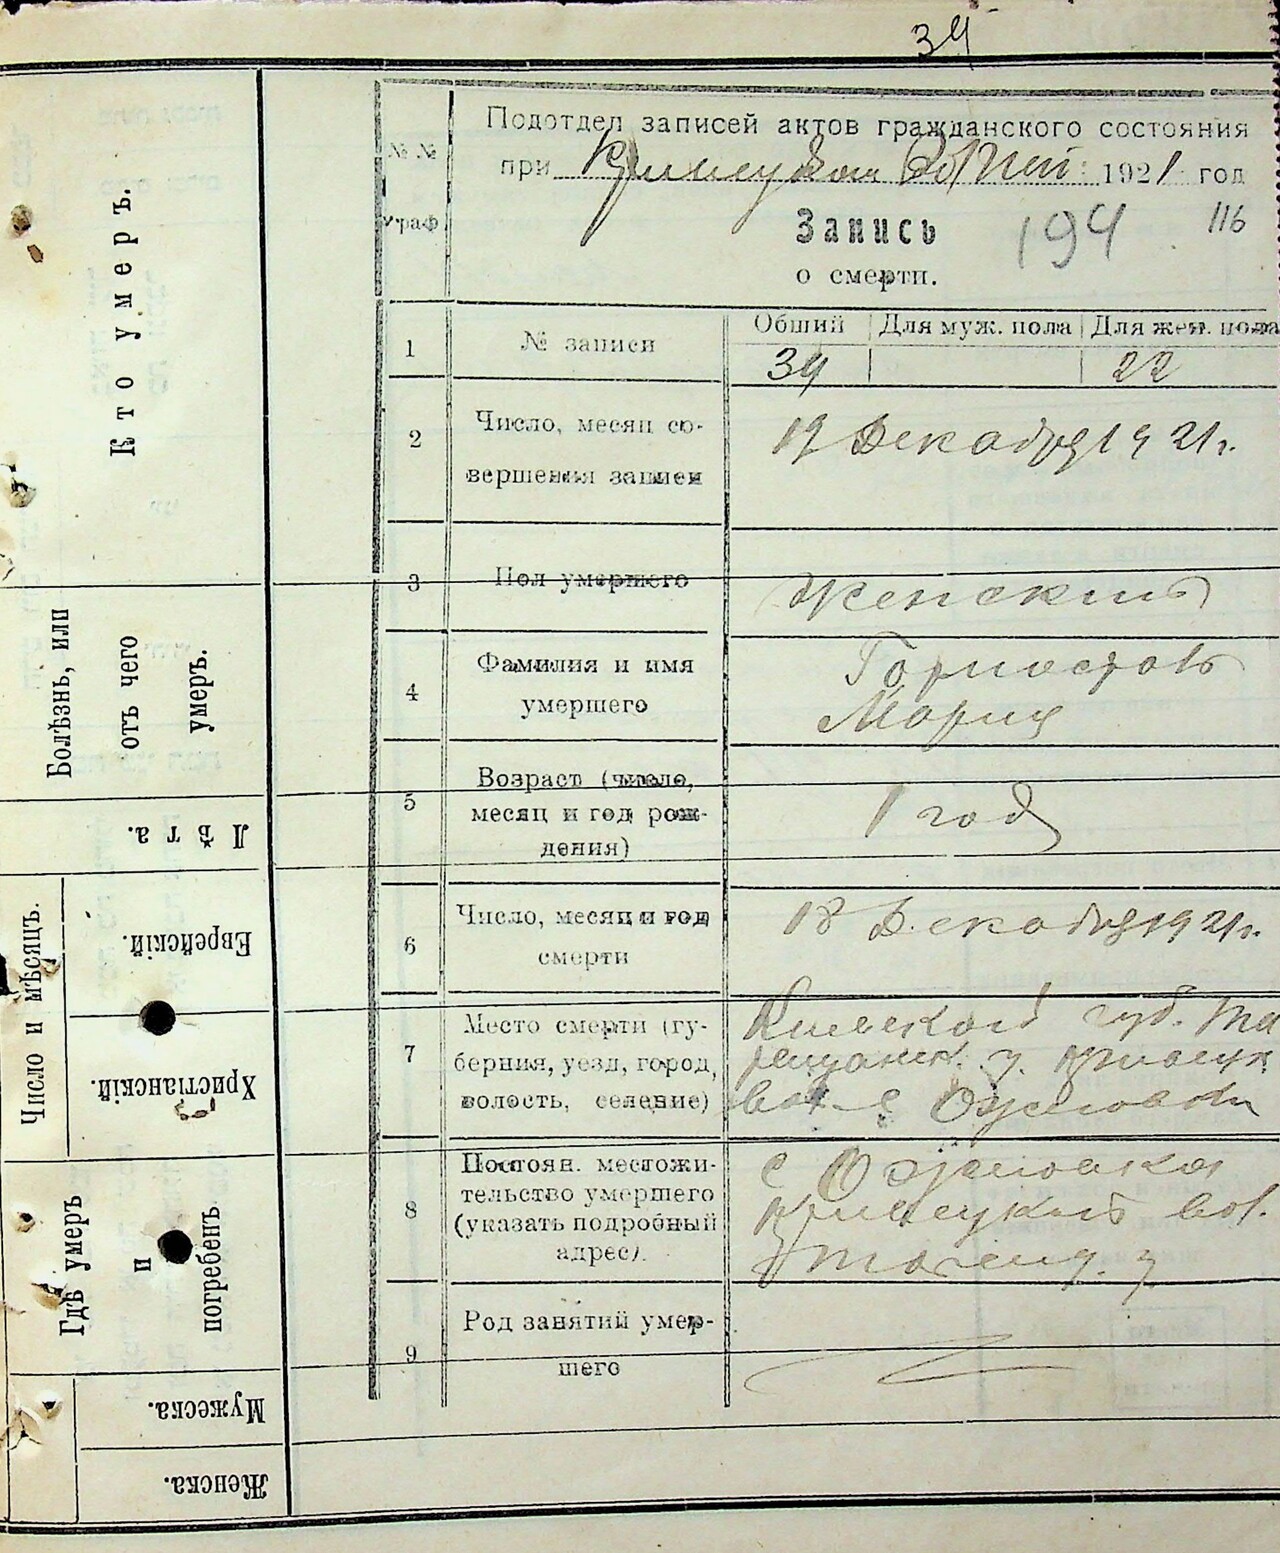 34
Подотдел записей актов гражданского состояния
при 1921 год
Запись 194 116
о смерти.
№ №
граф
1
№ записи
Общий Для муж. пола Для жен. пола
34 22
2
Число, месяц со-
вершения записи
19 Декабря 1921 г.
3
Пол умершего
Женский
4
Фамилия и имя
умершего
Мария
5
Возраст (число,
месяц и год рож-
дения)
1 год
6
Число, месяц и год
смерти
18 Декабря 1921 г.
7
Место смерти (гу-
берния, уезд, город,
волость, селение)
Киевской губ. Та
ращанск. у.
вол. с
8
Постоян. местожи-
тельство умершего
(указать подробный
адрес).
с
вол.
у
9
Род занятий умер-
шего
Кто умеръ.
Болѣзнь, или
отъ чего
умеръ.
Лѣта.
Число и мѣсяцъ.
Еврейскій.
Христіанскій.
Гдѣ умеръ
и
погребенъ
Мужеска.
Женска.